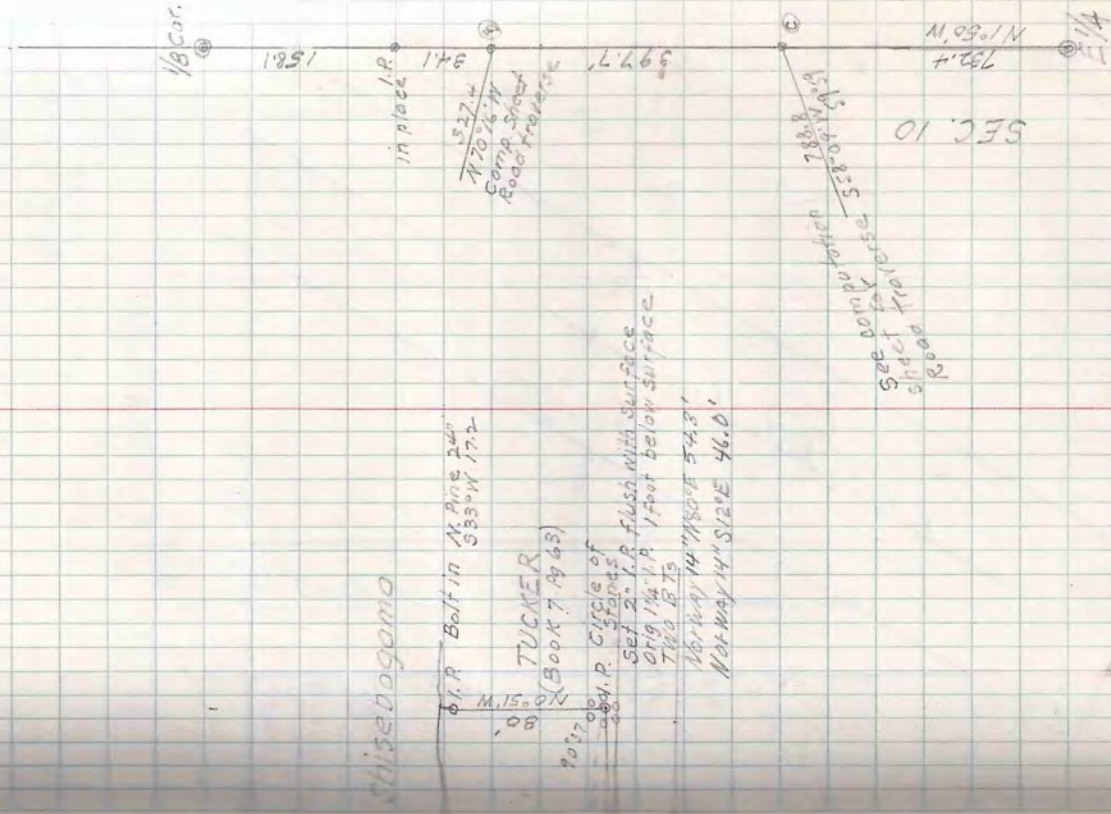 1/8 Cor.
158.1
I.P.
in place
34.1
327.4
N 70°16'W
Comp. Sheet
Road traverse
397.7'
C
732.4
N1°50'W
E 1/4
SEC. 10
788.8
See computation
sheet for
Road traverse
Shisebogamo
I.P. Bolt in N. Pine 24"
S33°W 17.2
TUCKER
(BOOK 7. Pg 63)
80'
N0°51'W
90°37'
I.P. Circle of
Stones
Set 2" I.P. flush with surface
Orig 1 1/4" I.P. 1 foot below surface
TWO BTs
Norway 14" N80°E 54.3'
Norway 14" S12°E 46.0'